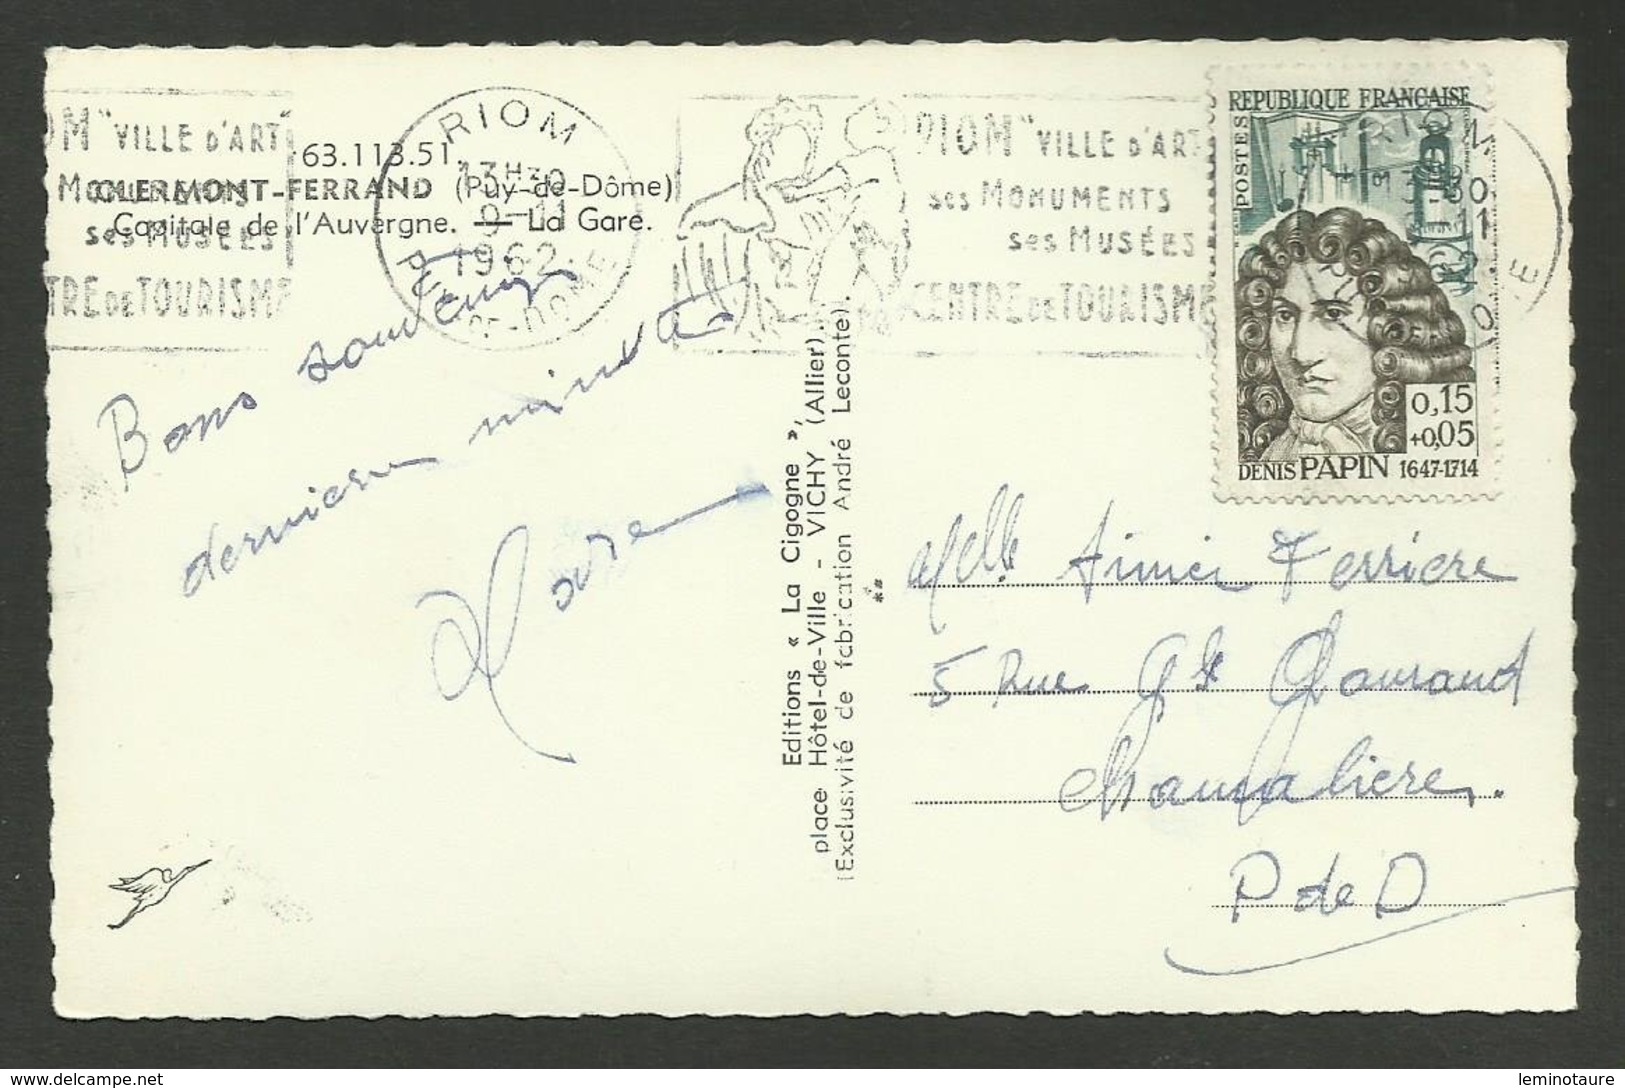 OM "VILLE D'ART
Monuments
ses Musées
TRE DE TOURISME
63.113.51.
CLERMONT-FERRAND (Puy-de-Dôme)
Capitale de l'Auvergne. — La Gare.
RIOM
13H30
9-11
1962
PUY-DE-DOME
RIOM "VILLE D'ART
ses MONUMENTS
ses MUSÉES
CENTRE DE TOURISME
REPUBLIQUE FRANCAISE
POSTES
0,15
+0,05
DENIS PAPIN 1647-1714
Bons souvenirs
dernière minute
Editions « La Cigogne »,
place Hôtel-de-Ville - VICHY (Allier)
(Exclusivité de fabrication André Leconte).
**
Melle Aimée Ferrière
5 Rue
Chamalières.
P de D
leminotaure